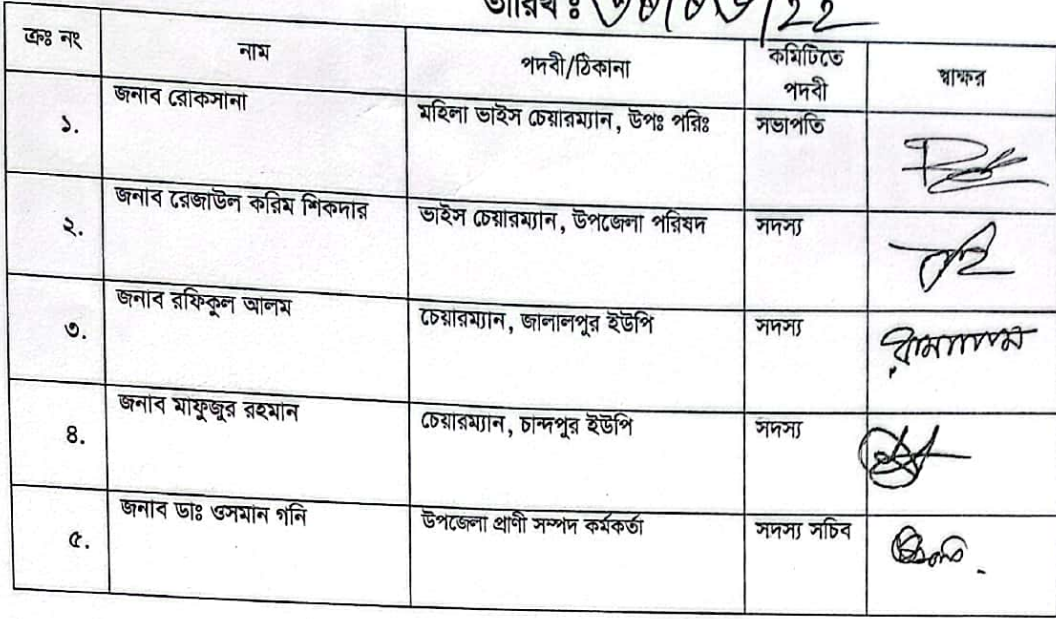 তারিখ ঃ
ক্রঃ নং নাম পদবী/ঠিকানা কমিটিতে পদবী স্বাক্ষর
১. জনাব রোকসানা মহিলা ভাইস চেয়ারম্যান, উপঃ পরিঃ সভাপতি
২. জনাব রেজাউল করিম শিকদার ভাইস চেয়ারম্যান, উপজেলা পরিষদ সদস্য
৩. জনাব রফিকুল আলম চেয়ারম্যান, জালালপুর ইউপি সদস্য
৪. জনাব মাফুজুর রহমান চেয়ারম্যান, চান্দপুর ইউপি সদস্য
৫. জনাব ডাঃ ওসমান গনি উপজেলা প্রাণী সম্পদ কর্মকর্তা সদস্য সচিব